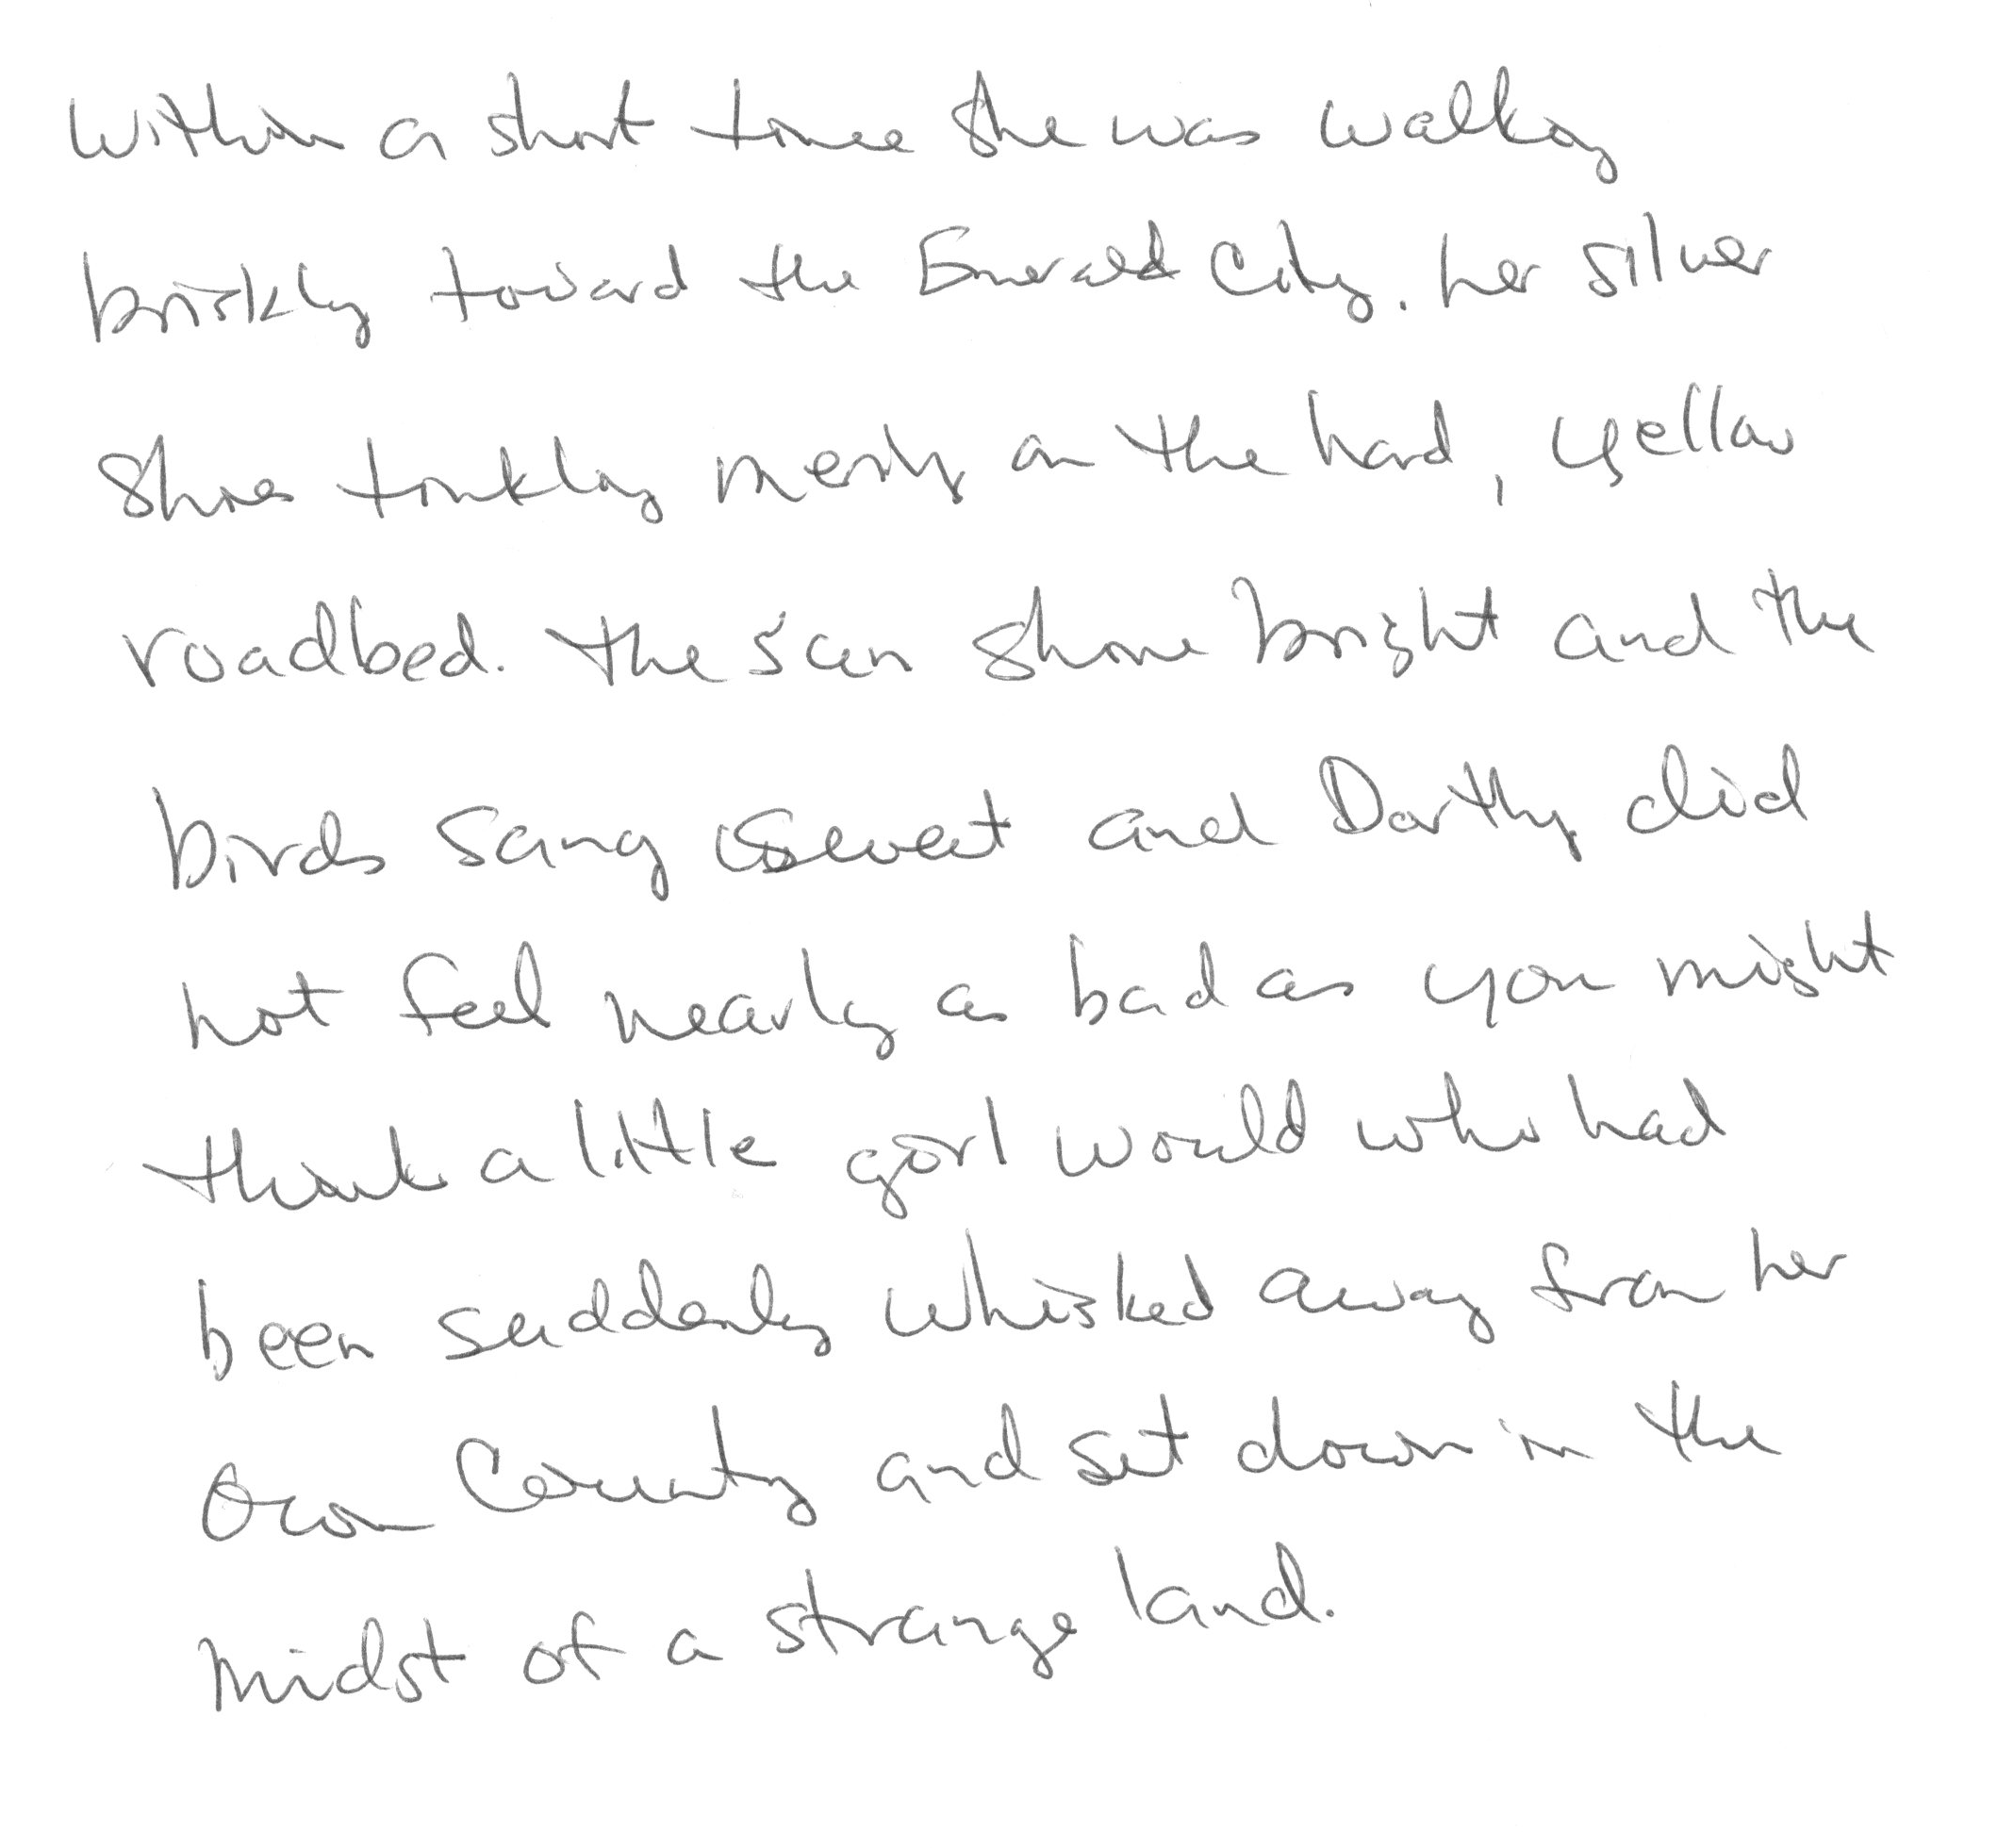 Within a short time she was walking
briskly toward the Emerald City. her silver
shoes tinkling merrily on the hard, yellow
roadbed. the sun shone bright and the
birds sang sweet and Dorothy did
not feel nearly as bad as you might
think a little girl would who had
been suddenly whisked away from her
own country and set down in the
midst of a strange land.